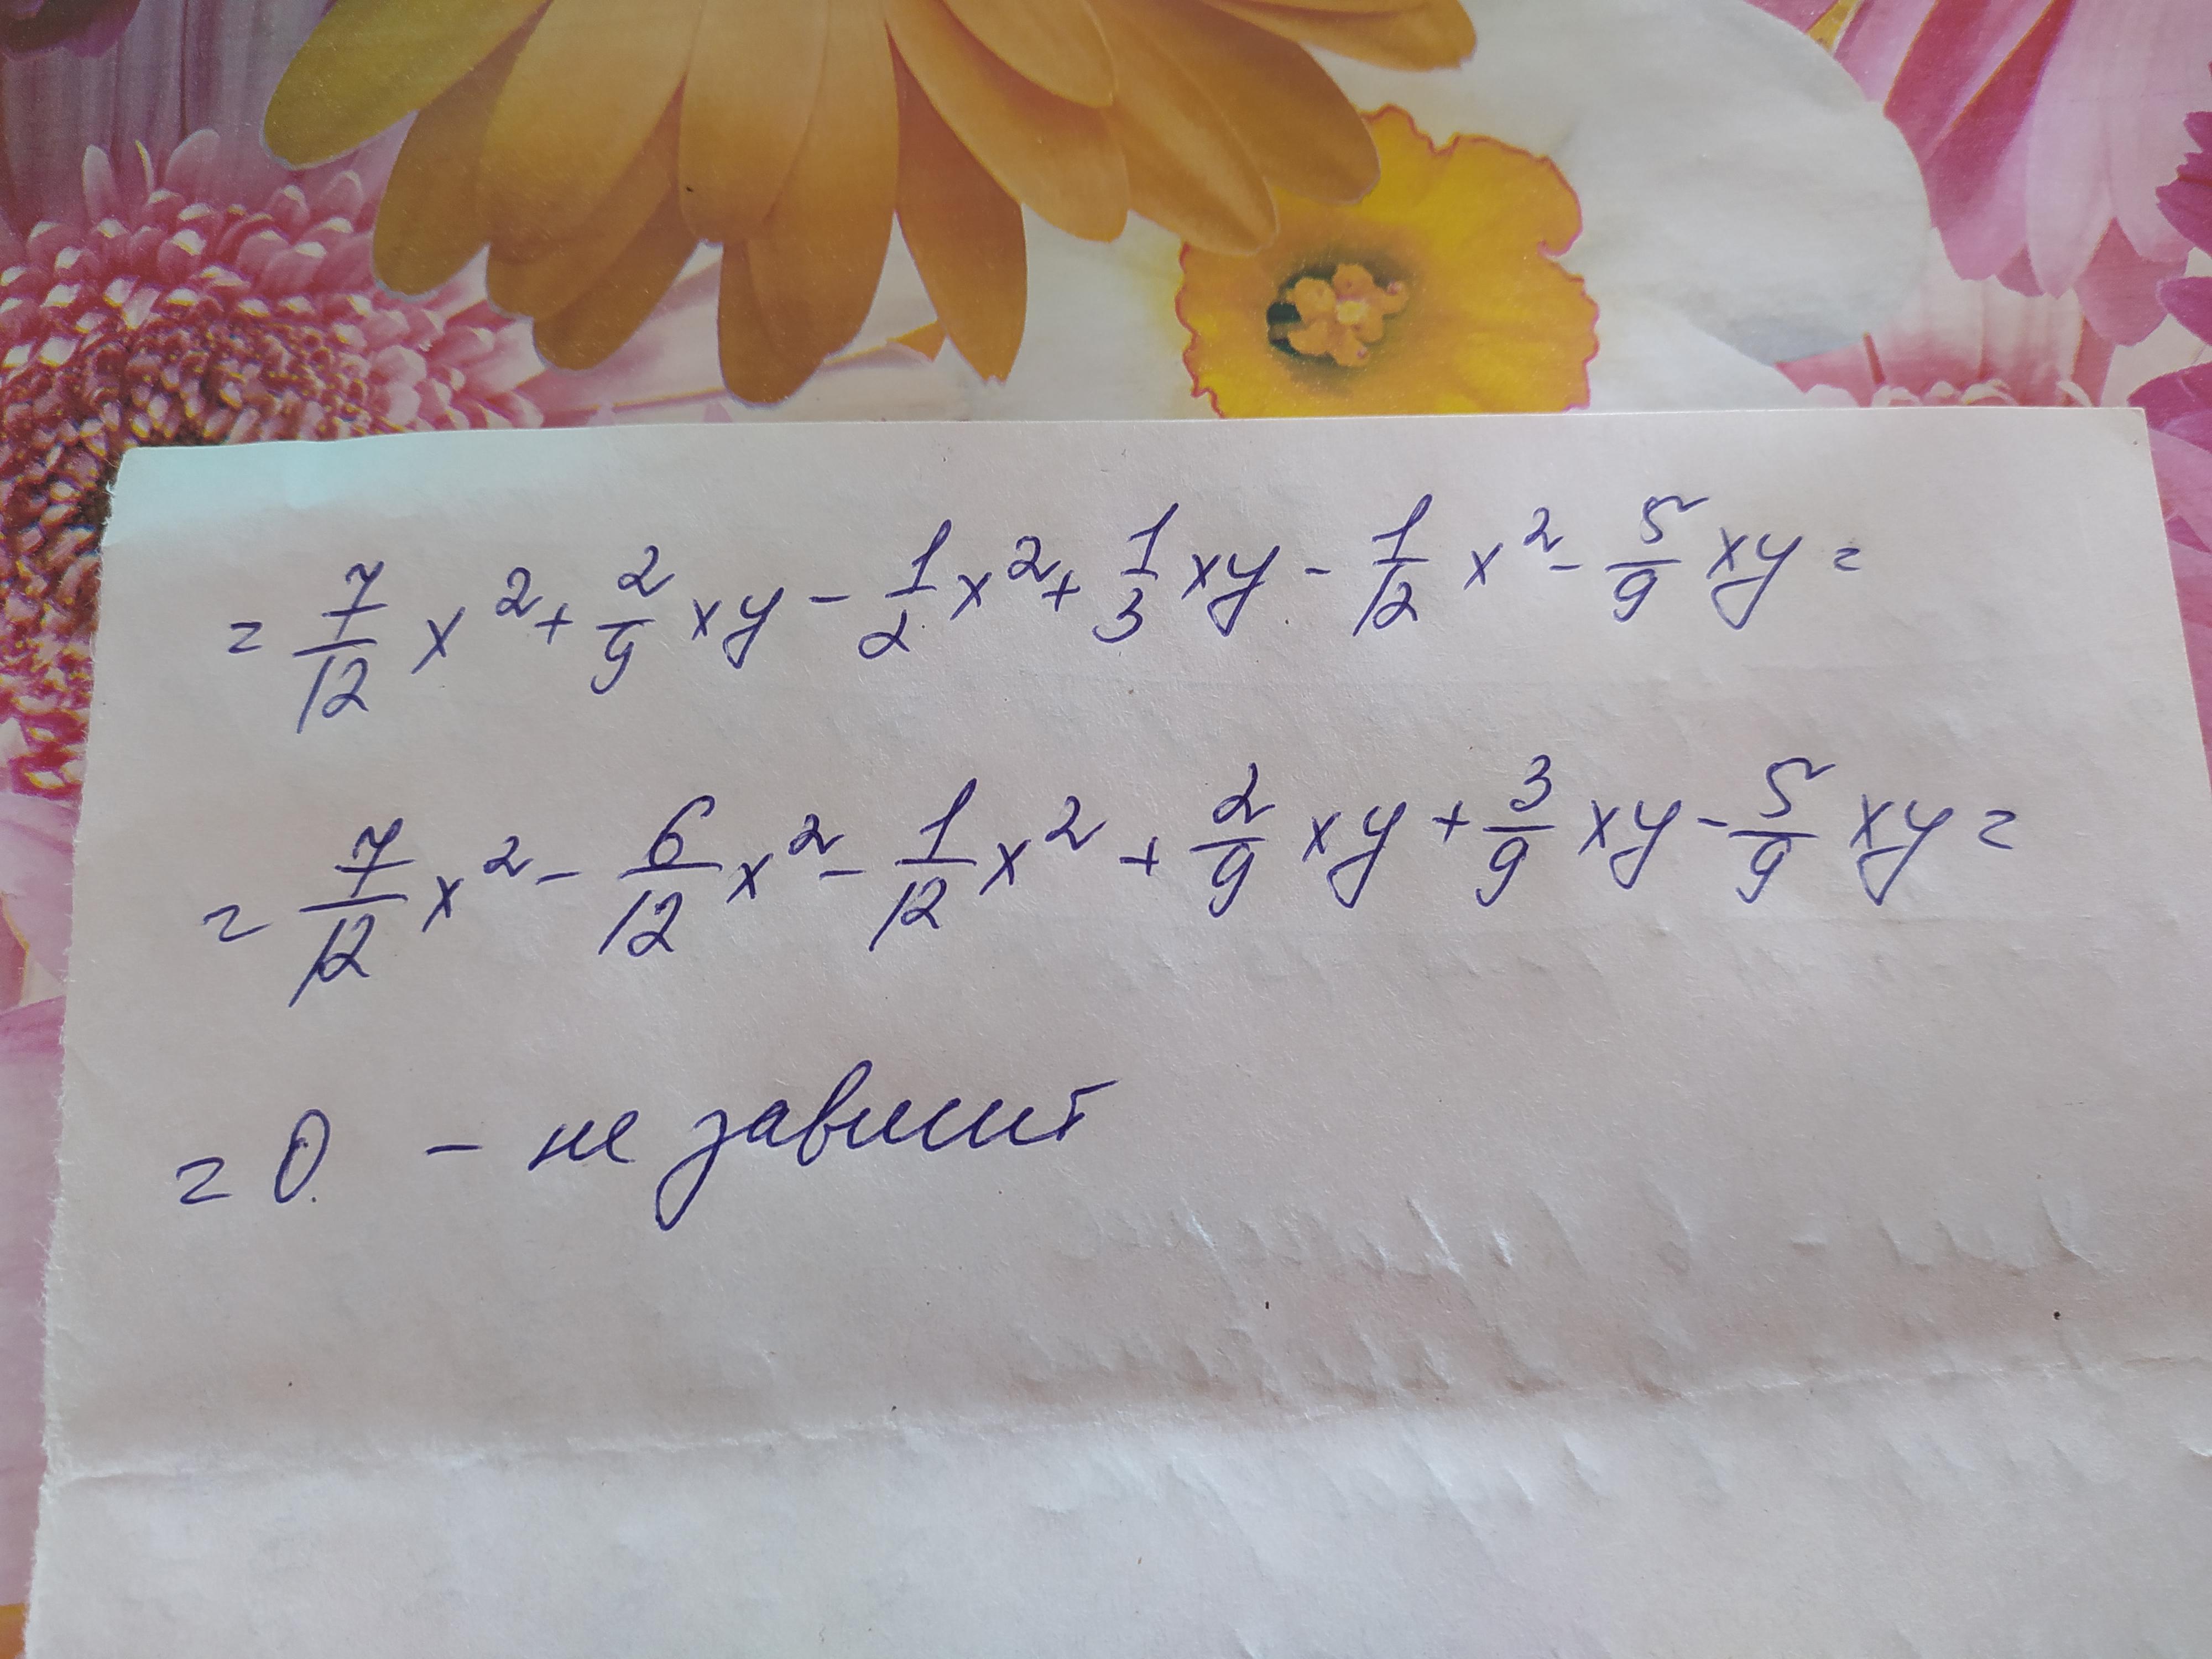 = 7/12 x² + 2/9 xy - 1/2 x² + 1/3 xy - 1/12 x² - 5/9 xy =
= 7/12 x² - 6/12 x² - 1/12 x² + 2/9 xy + 3/9 xy - 5/9 xy =
= 0. - не зависит